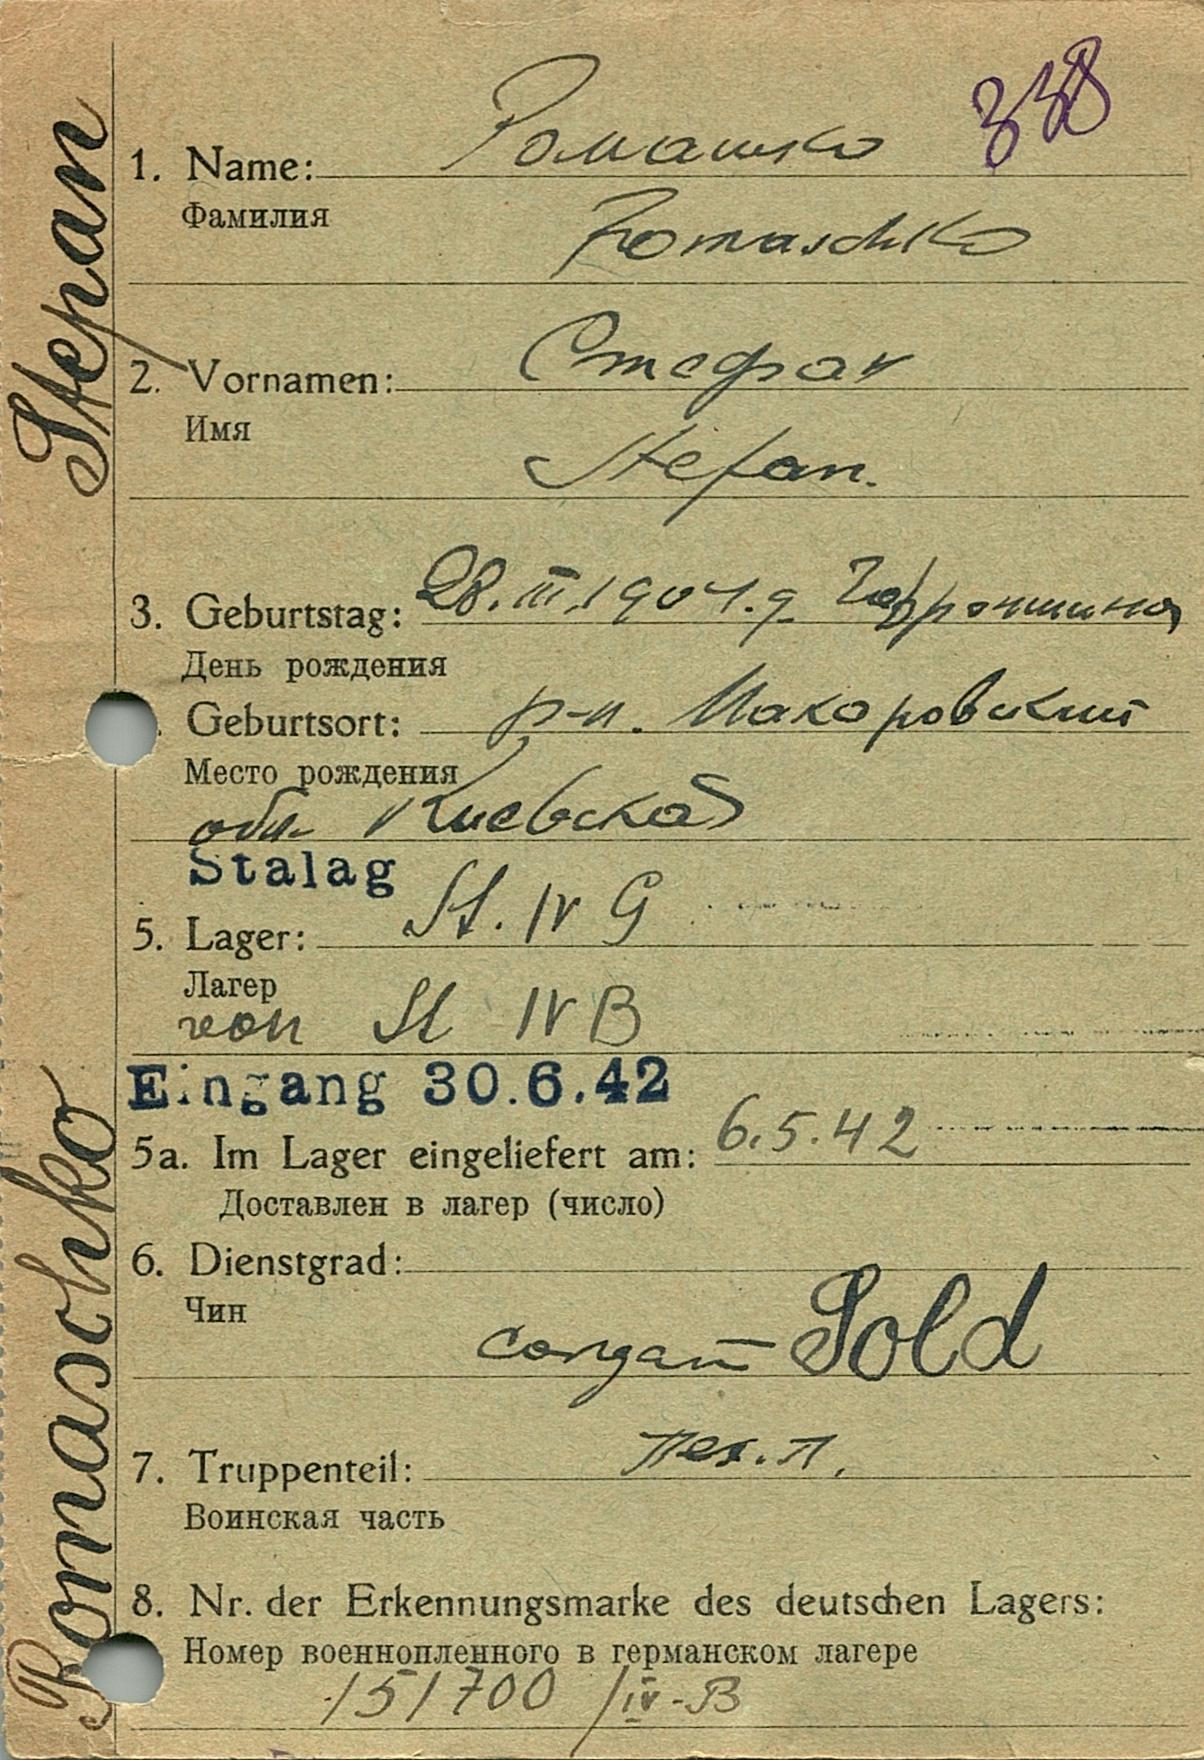 338
1. Name: Ромашко
Фамилия
Romaschko
2. Vornamen: Стефан
Имя
Stefan.
3. Geburtstag: 28.III.1904.д
День рождения
Geburtsort: р-н. Макаровский
Место рождения
обл. Киевской
Stalag
5. Lager: St. IV G
Лагер
von St IV B
Eingang 30.6.42
5a. Im Lager eingeliefert am: 6.5.42
Доставлен в лагер (число)
6. Dienstgrad:
Чин
солдат Sold
7. Truppenteil: пех.п.
Воинская часть
8. Nr. der Erkennungsmarke des deutschen Lagers:
Номер военнопленного в германском лагере
151700 /IV-B
Romaschko Stepan